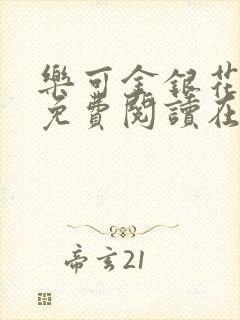 樂可金銀花
免費閱讀在
帝玄21